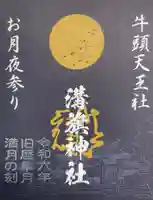 牛頭天王社
お月夜参り
溝旗神社
令和六年
旧暦皐月
満月の刻